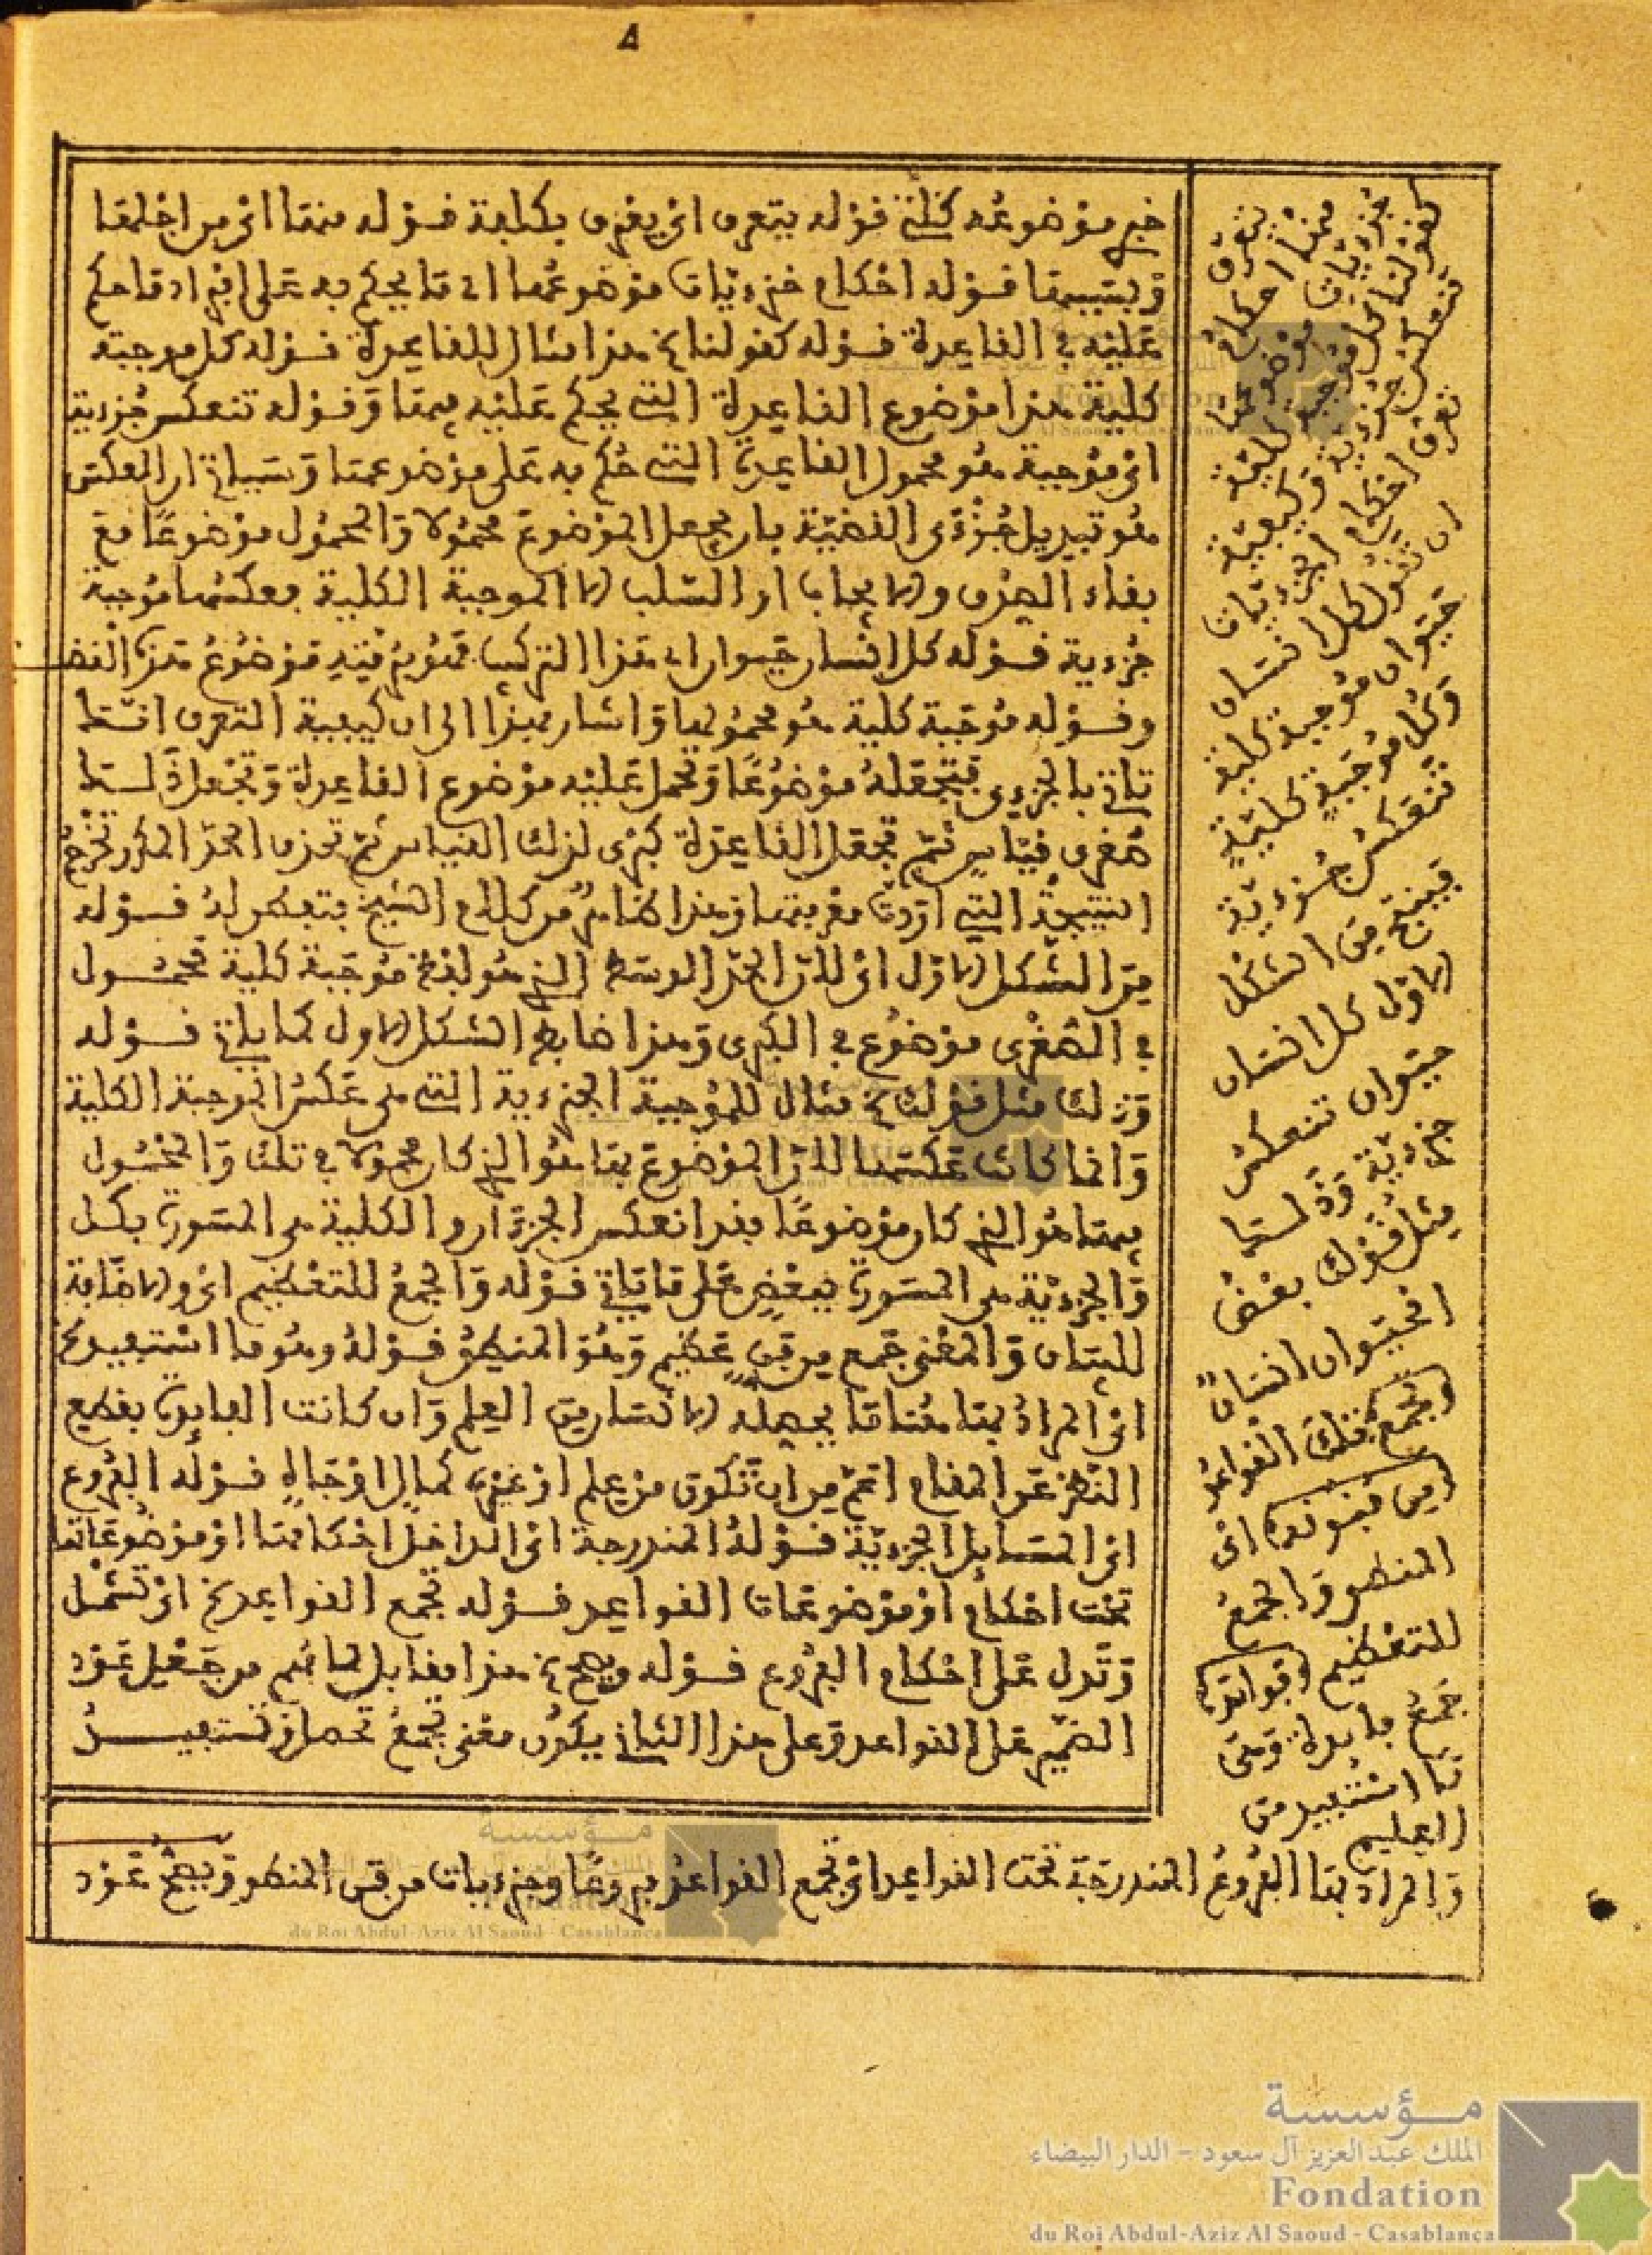 ٨
خبر موضوعه كلي قوله يتعرف اي يعرف بكلية قوله منها اي من اجلها
وبسببها قوله احكام جزءيات موضوعها اي ما يحكم به على افراد ما حكم
عليه في القاعدة قوله كقولنا الخ هذا مثال للقاعدة قوله كل موجبة
كلية هذا موضوع القاعدة التي يحكم عليه فيها وقوله تنعكس جزءية
اي موجبة هو محمول القاعدة التي حكم به على موضوعها وسياتي ان العكس
هو تبديل جزءي القضية بان يجعل الموضوع محمولا والمحمول موضوعا مع
بقاء الصدق والايجاب او السلب الا الموجبة الكلية فعكسها موجبة
جزءية قوله كل انسان حيوان اي هذا التركيب فهو بهيئته موضوع هذه القض
وقوله موجبة كلية هو محمولها واشار بهذا الى ان كيفية التعرف انك
تاتي بالجزءي فتجعله موضوعا وتحمل عليه موضوع القاعدة وتجعل ذلك
صغرى قياس ثم تجعل القاعدة كبرى لذلك القياس ثم تحذف الحد المكرر تخرج
النتيجة التي اردت معرفتها وهذا ظاهر من كلام الشيخ فتفطن له قوله
من الشكل الاول اي لان الحد الوسط الذي هو لفظ موجبة كلية محمول
في الصغرى موضوع في الكبرى وهذا ضابط الشكل الاول كما ياتي قوله
وذلك مثل قولك الخ مثال للموجبة الجزءية التي هي عكس الموجبة الكلية
وانما كانت عكسها لان الموضوع بها هو الذي كان محمولا في تلك والمحمول
فيها هو الذي كان موضوعا فقد انعكس الجزءان والكلية هي المسورة بكل
والجزءية هي المسورة ببعض على ما ياتي قوله والجمع للتعظيم اي والاضافة
للبيان والمعنى جمع من فن عظيم وهو المنطق قوله وهو ما استفيد الخ
اي المراد بها هنا ما يحصله الانسان من العلم وان كانت الفايدة بقطع
النظر عن المقام اعم من ان تكون من علم او غيره كمال او جاه قوله الفروع
اي المسايل الجزءية قوله المندرجة اي الداخل احكامها او موضوعاتها
تحت احكام او موضوعات القواعد قوله تجمع القواعد الخ اي تشمل
وتدل على احكام الفروع قوله ويصح الخ هذا مقابل لما فهم من جعل عود
الضمير على القواعد وعلى هذا الثاني يكون معنى تجمع تحصل وتستفيد
يتعرف
منها احكام
جزءيات موضوعها
كقولنا كل موجبة كلية
تنعكس جزءية وكيفية
تعرف احكام الجزءيات
ان تقول كل انسان
حيوان موجبة كلية
وكل موجبة كلية
تنعكس جزءية
فينتج من الشكل
الاول كل انسان
حيوان تنعكس
جزءية وذلك
مثل قولك بعض
الحيوان انسان
(وتجمع) تلك القواعد
(من فنونه) اي
المنطق والجمع
للتعظيم (فوائدا)
جمع فايدة وهي
ما استفيد من
العلم
والمراد بها الفروع المندرجة تحت القواعد اي تجمع القواعد فروعا وجزءيات من فن المنطق ويصح عود
مؤسسة
الملك عبد العزيز آل سعود - الدار البيضاء
Fondation
du Roi Abdul-Aziz Al Saoud - Casablanca